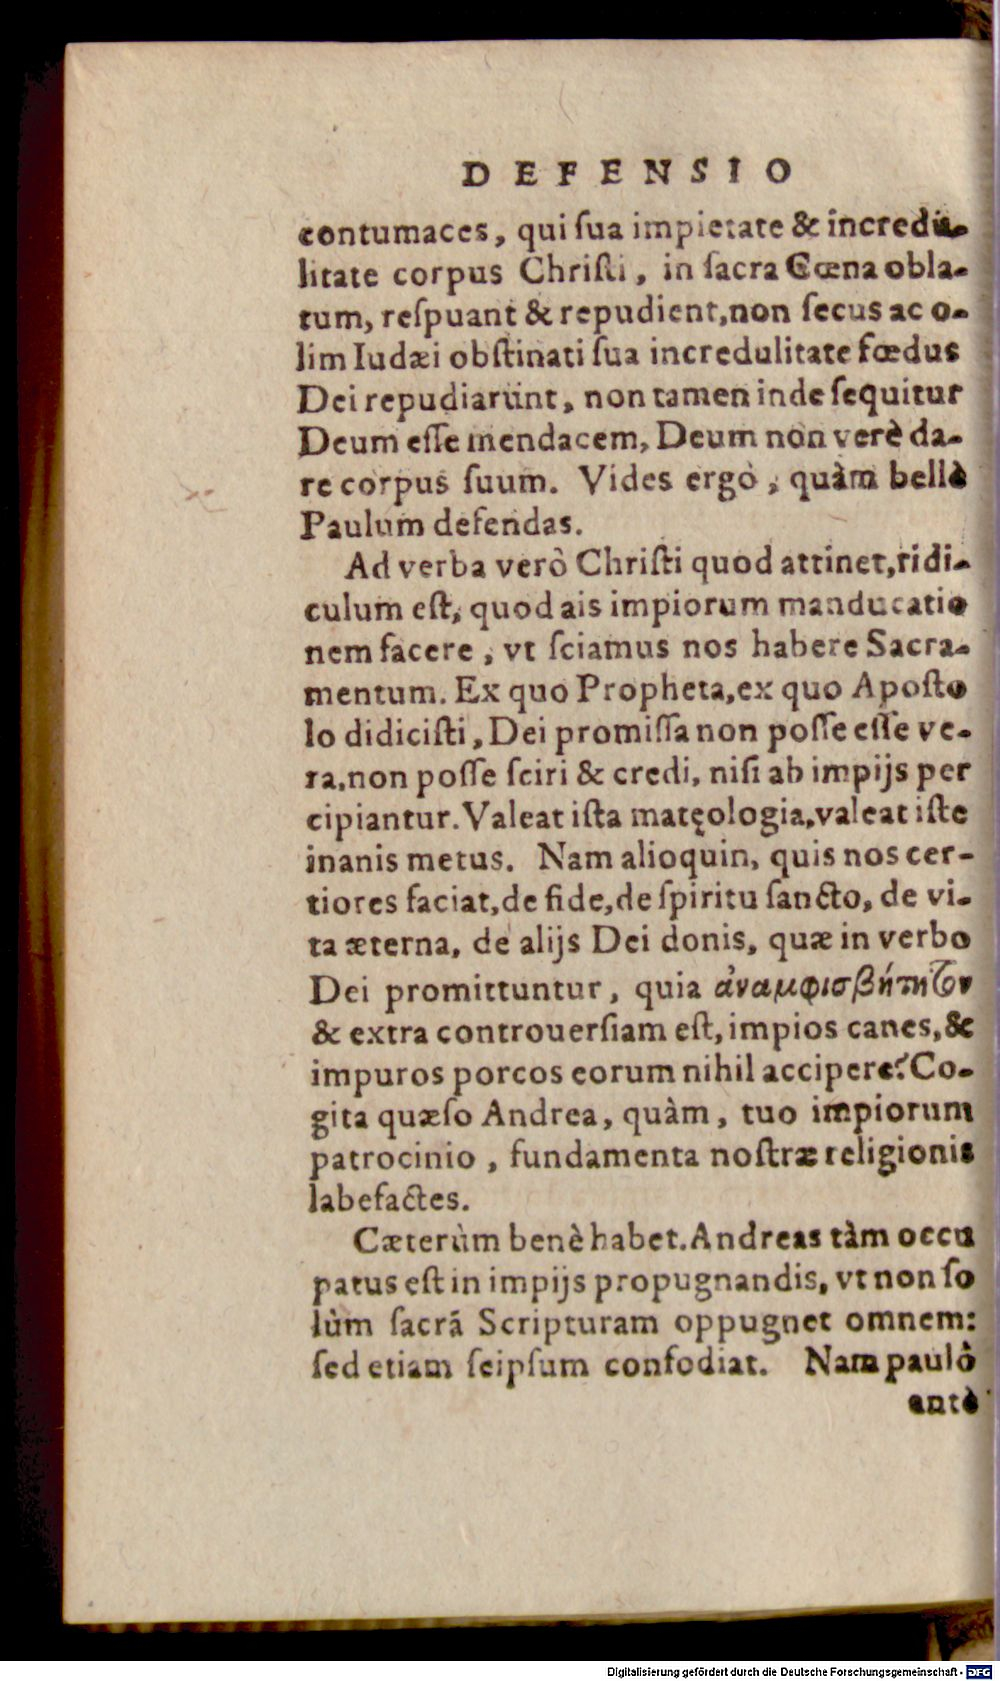 DEFENSIO
contumaces, qui ſua impietate & incredu-
litate corpus Chriſti, in ſacra Cœna obla-
tum, reſpuant & repudient, non ſecus ac o-
lim Iudæi obſtinati ſua incredulitate fœdus
Dei repudiarunt, non tamen inde ſequitur
Deum eſſe mendacem, Deum non verè da-
re corpus ſuum. Vides ergò, quàm bellè
Paulum defendas.
Ad verba verò Chriſti quod attinet, ridi-
culum eſt, quod ais impiorum manducatio
nem facere, vt ſciamus nos habere Sacra-
mentum. Ex quo Propheta, ex quo Apoſto
lo didiciſti, Dei promiſſa non poſſe eſſe ve-
ra, non poſſe ſciri & credi, niſi ab impijs per
cipiantur. Valeat iſta matęologia, valeat iſte
inanis metus. Nam alioquin, quis nos cer-
tiores faciat, de fide, de ſpiritu ſancto, de vi-
ta æterna, de alijs Dei donis, quæ in verbo
Dei promittuntur, quia ἀναμφισβήτητον
& extra controuerſiam eſt, impios canes, &
impuros porcos eorum nihil accipere? Co-
gita quæſo Andrea, quàm, tuo impiorum
patrocinio, fundamenta noſtræ religionis
labefactes.
Cæterùm benè habet. Andreas tàm occu
patus eſt in impijs propugnandis, vt non ſo
lùm ſacrā Scripturam oppugnet omnem:
ſed etiam ſeipſum confodiat. Nam paulò
antè
Digitalisierung gefördert durch die Deutsche Forschungsgemeinschaft - DFG